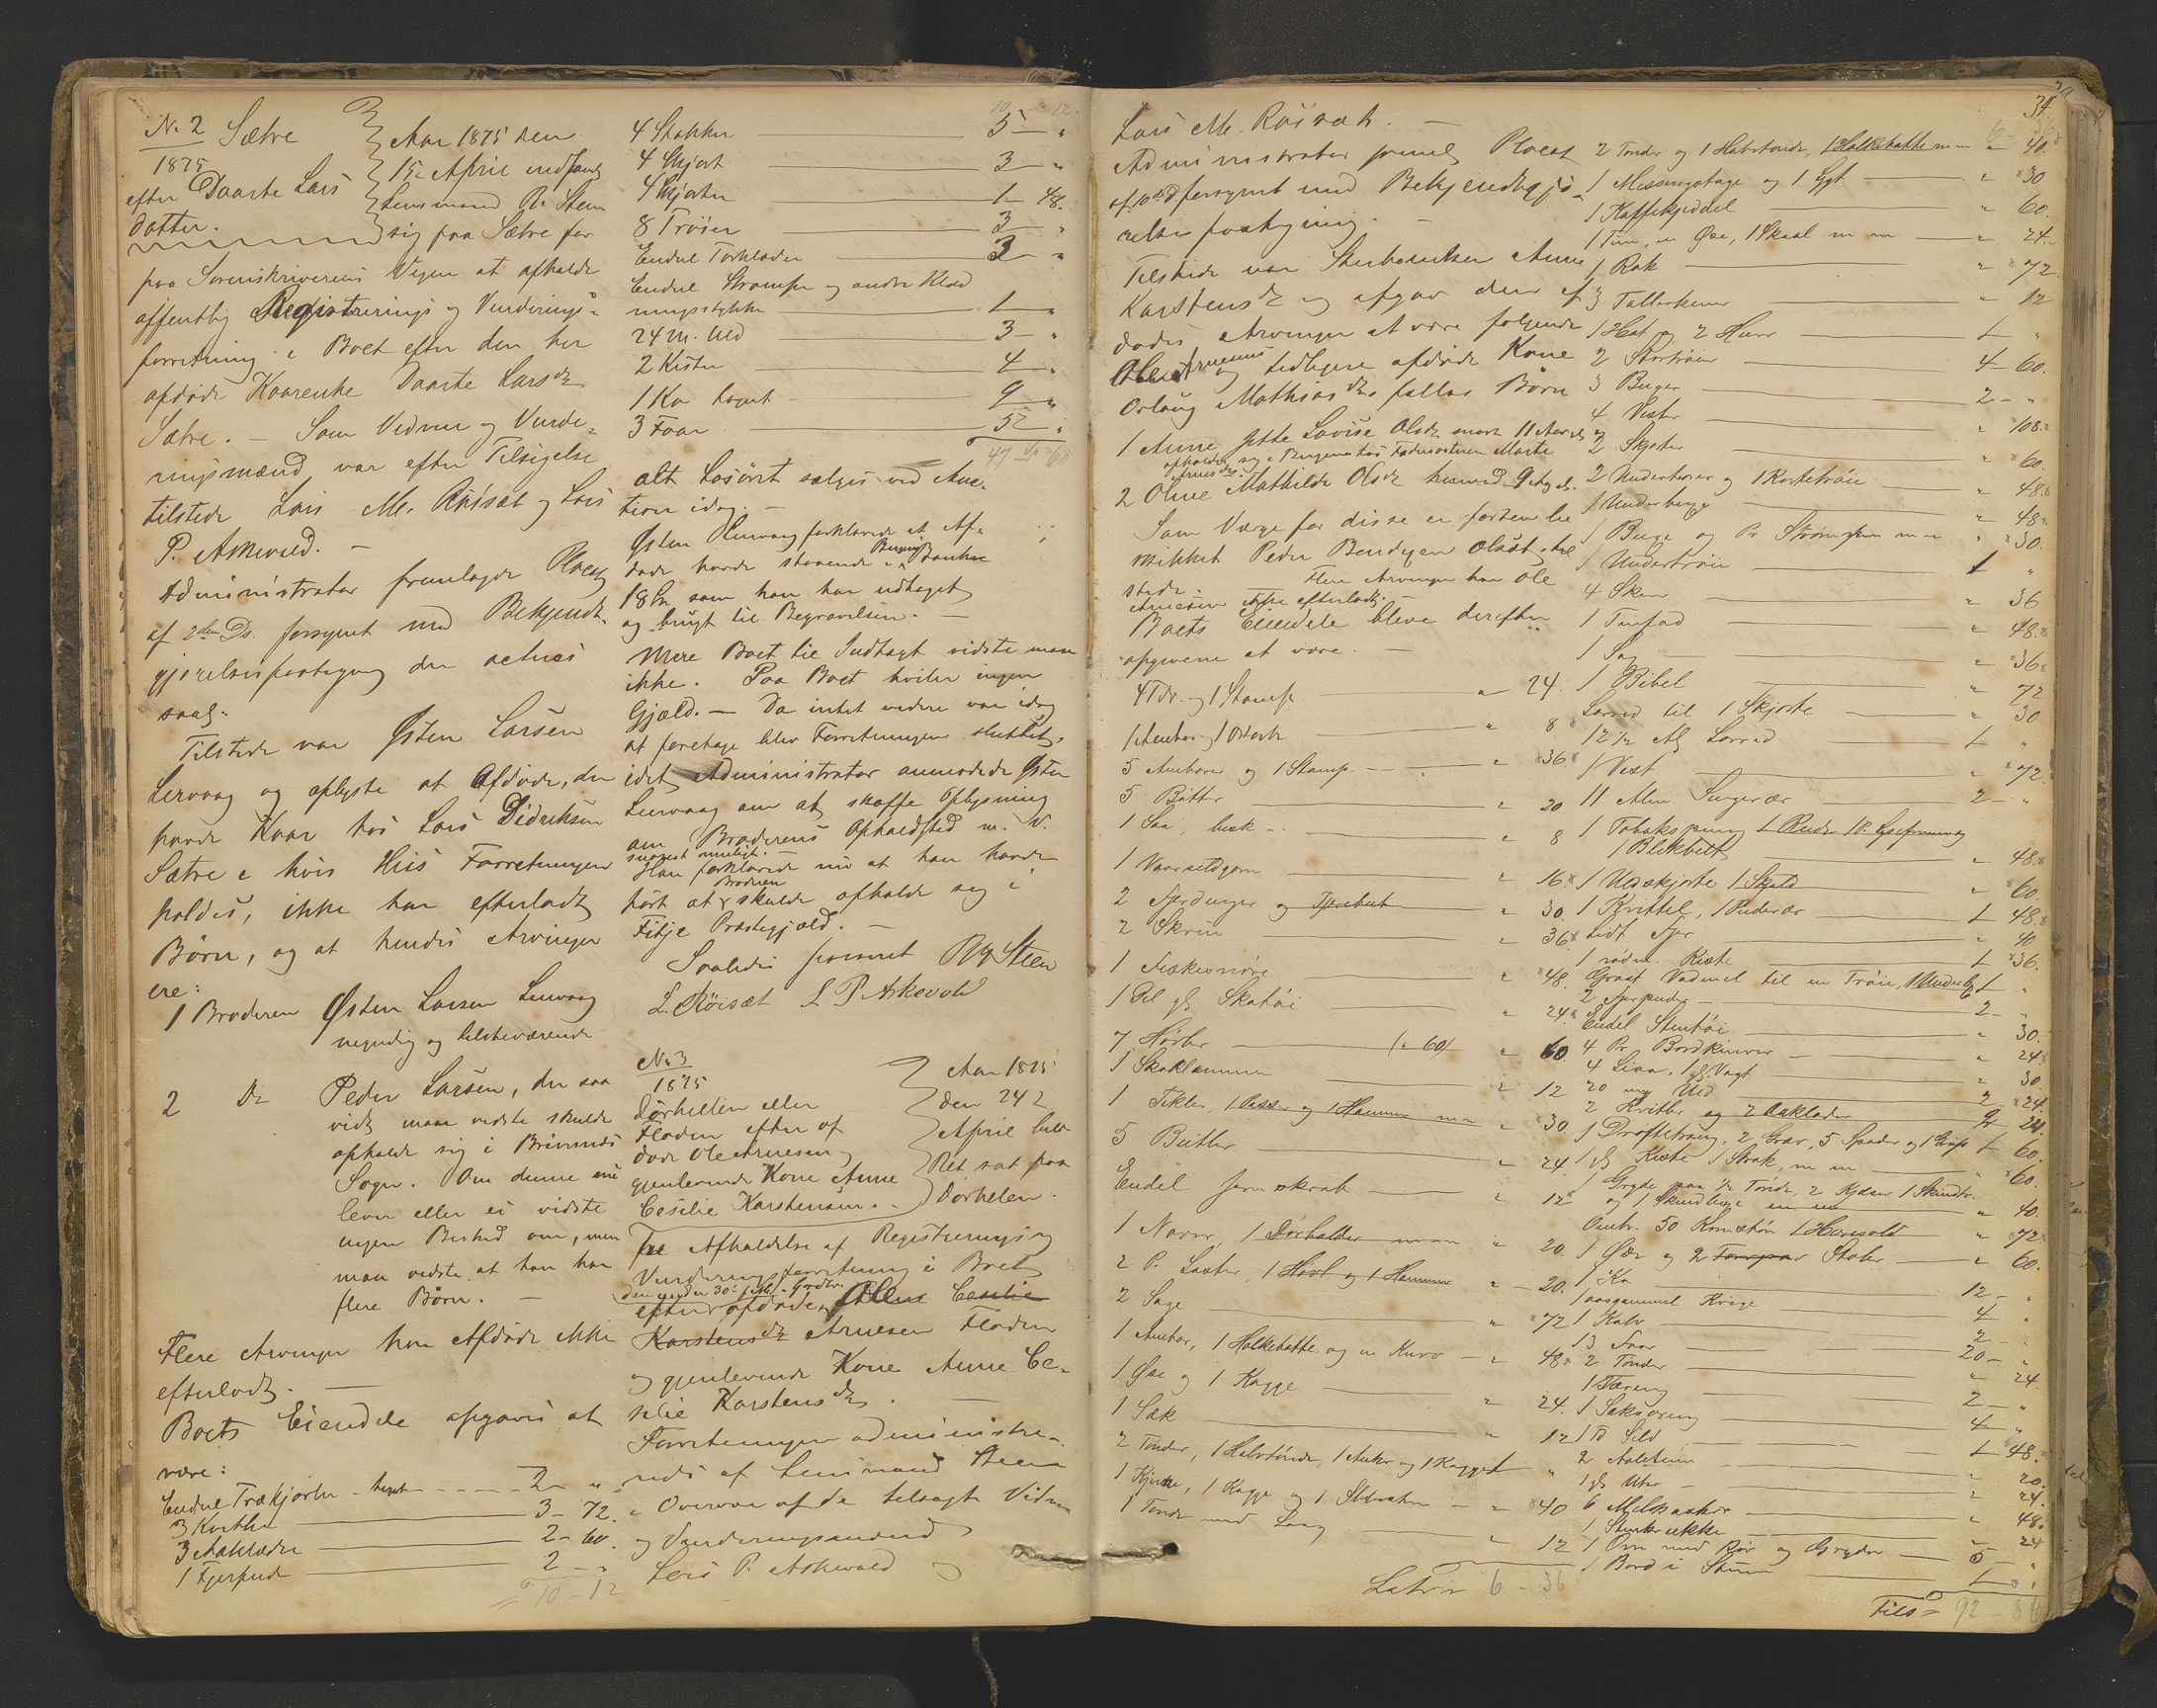 No 2 Sætre
1875
efter Daarte Lars
datter.
Aar 1875 den
15de April indfandt
Lensmand R. Steen
sig paa Sætre for
paa Sorenskriverens Vegne at afholde
offentlig Registrerings og Vurderings-
forretning i Boet efter den her
afdøde Kaarenke Daarte Larsdr
Sætre. – Som Vidner og Vurde-
ringsmænd var efter Tilsigelse
tilstede Lars M. Røisæt og Lars
P. Askevold. –
Administrator fremlagde Placat
af 2den Ds. forsynet med Bekjendt-
gjørelsespaategning der acteres
saal:
Tilstede var Østen Larsen
Lervaag og oplyste at Afdøde, der
havde Kaar hos Lars Didriksen
Sætre i hvis Hus Forretningen
holdes, ikke har efterladt
Børn, og at hendes Arvinger
ere:
1 Broderen Østen Larsen Leervaag
myndig og tilstedeværende
2 Do Peder Larsen, der saa
vidt man vidste skulde
opholde sig i Bremnæs
Sogn. Om denne nu
lever eller ei vidste
ingen Besked om, men
man vidste at han har
flere Børn. –
Flere Arvinger har Afdøde ikke
efterladt. –
Boets Eiendele opgaves at
være:
Endel Trækjørler - - - 2 - "
3 Kvitler 3 - 72.
3 Aaklæder 2 - 60.
1 Fjerpude 2 - "
10 - 12
10 - 12.
4 Stakker 5 - "
4 Skjørt 3 - "
4 Skjorter 1 - 48.
8 Trøier 3 - "
Endel Tørklæder 3 - "
Endel Strømper og andre Klæd
ningsstykker 1 - "
24 m. Uld 3 - "
2 Kister 4 - "
1 Ko 9 - "
3 Faar
alt Løsøret sælges ved Auc-
tion idag. –
Østen Leervaag forklarede at Af-
døde havde staaende i Bergens Banken
18 Spd som han har udtaget
og brugt til Begravelsen. –
Mere Boet til Indtægt vidste man
ikke. Paa Boet hviler ingen
Gjæld. – Da intet videre var idag
at foretage blev Forretningen sluttet,
idet Administrator anmodede Østen
Leervaag om at skaffe Oplysning
om Broderens Opholdsted m. V.
snarest muligt. –
Han forklarede nu at han havde
hørt at Broderen skulde opholde sig i
Fitje Præstegjæld. –
Saaledes passeret R Steen
L. Røisæt L P Askevold
No 3
1875
Dørhellen eller
Floden efter af
døde Ole Arnesen og
gjenlevende Kone Anne
Cesilie Karstensdr. –
Aar 1875
den 24de
April blev
Ret sat paa
Dørhelen.
til Afholdelse af Registrerings og
Vurderingsforretning i Boet
efter den under 30te afdøde Ole Cesilie
Karstensdr Arnesen Floden
og gjenlevende Kone Anne Ce-
silie Karstensdr. –
Forretningen administre-
redes af Lensmand Steen
i Overvær af de tilsagte Vidner
og Vurderingsmænd
Lars P. Askevold og
34
Lars M. Røisæt. –
Administrator freml. Placat
af 10de d. forsynet med Bekjendtgjø-
relsespaategning. –
Tilstede var Sterboenken Anne
Karstensdr og opgav den af-
dødes Arvinger at være følgende
Ole Arnesens og tidligere afdøde Kone
Orlaug Mathiasdrs fælles Børn
1 Anne Jytte Lovise Olsdr snart 11 Aar
opholder sig i Bergen hos Fadersøsteren Marte
Arnesdr.
2 Oline Mathilde Olsdr henved 9 Aar gl.
Som Værge for disse er foreslaaet
Peder Bendixen Olset, til
stede. Flere Arvinger har Ole
Arnesen ikke efterladt. –
Boets Eiendele bleve derefter
opgivne at være. –
4 Tdr. og 1 Stamp " 24.
1 Ambar og 1 " 8
5 Ambarer og 1 Stamp " 36
5 Bøtter " 20
1 Saa, " 8
1 Vaarsildgarn " 16
2 Spedinger og " 30.
2 Skrin " 36
1 Fiskesnøre " 48.
1 Del gl. Skatøi " 24
7 Høvler (" 60) " 60.
1 " 12
1 Tekler, 1 Passer og 1 Hammer m m " 30.
5 Bütler " 24
Endel Jernskrab " 12
1 Naver, 1 Dørholder m m " 20.
2 Pr. Saxter, 1 Høvl og 1 Hammer " 20.
2 Sage " 72
1 Ambar, 1 Halkebøtte og en Kurv " 48
1 Øse og 1 Kagge " 24.
1 Sæk " 12
2 Tønder, 1 Halvtønde, 1 Anker og 1 Kagge 1 "
1 Kjerne, 1 Kagge og 1 " 40
1 Tønde med Laag " 12
Latus 6 - 36
6 - 36
2 Tønder og 1 Halvtønde, 1 Halkebøtte m m " 40.
1 Messingstage og 1 Lygt " 30
1 Kaffekjeddel " 60.
1 Tine, en Øse, 1 Skaal m m " 24.
1 Rok " 72
3 Tallerkener " 12
1 Hat og 2 Huer 1 "
2 Stortrøier 4 - 60.
3 Buxer 2 - "
4 Veste " 108.
2 Skjorter " 60.
2 Undertrøier og 1 Kortetrøie " 48
1 Underbuxe " 48
1 Buxe og Pr Strømper m m " 30.
1 Undertrøie 1 "
4 Skeer " 36
1 Tinfad " 48.
1 Sag " 36
1 Bibel " 72
Lærred til 1 Skjorte " 30
12 1/2 Al Lærred 1 "
1 Vest " 72.
11 Alen Sengevær 2 - "
1 Tobakspung
1 Blækhus " 48.
1 Uldskjorte 1 Skjold " 60
1 Kvittel, 1 Pudevær 1 48.
Lidt Fjer " 40
1 rødm. Kiste 1 36.
Graat Vadmel til en Trøie, 1 "
2 Fjerpuder 2 - "
Endel Stentøi " 30.
4 Pr Bordkniver " 24
4 Liaar, 1 gl. Vægt " 30.
20 mrk Uld 2 24.
2 Kvitler og 2 Aaklæder 9 24.
1 gl Kiste 1 Strok, m m " 60.
1 Gryde paa 1/2 Tønde, 2 Kjedler
og 1 Skindbuxe m m " 40.
1 Ko 12 - "
1 aarsgammel Kvige 4 "
1 Kalv 2 -
13 Faar 20 - "
2 Tønder " 24.
1 Færing 2 - "
1 Sexæring 4 "
1 Td Sild 1 48.
2 " 20.
1 gl. Uhr " 24.
6 Melkeankar " 48.
1 Stenkrukke " 24
1 Ovn med Rør og Gryder 5 - "
1 Bord i Stuen 1 "
Tils = 92 - 86